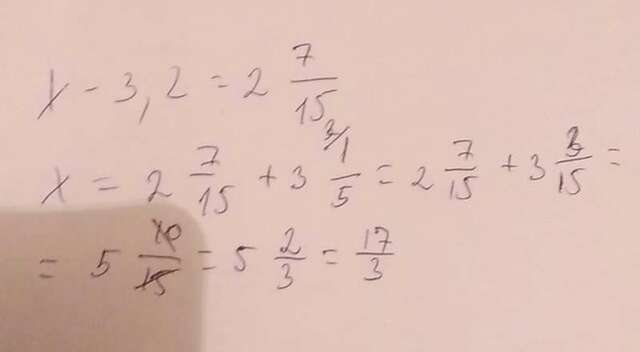 x - 3,2 = 2 7/15
x = 2 7/15 + 3 3/ 1/5 = 2 7/15 + 3 3/15 =
= 5 10/15 = 5 2/3 = 17/3